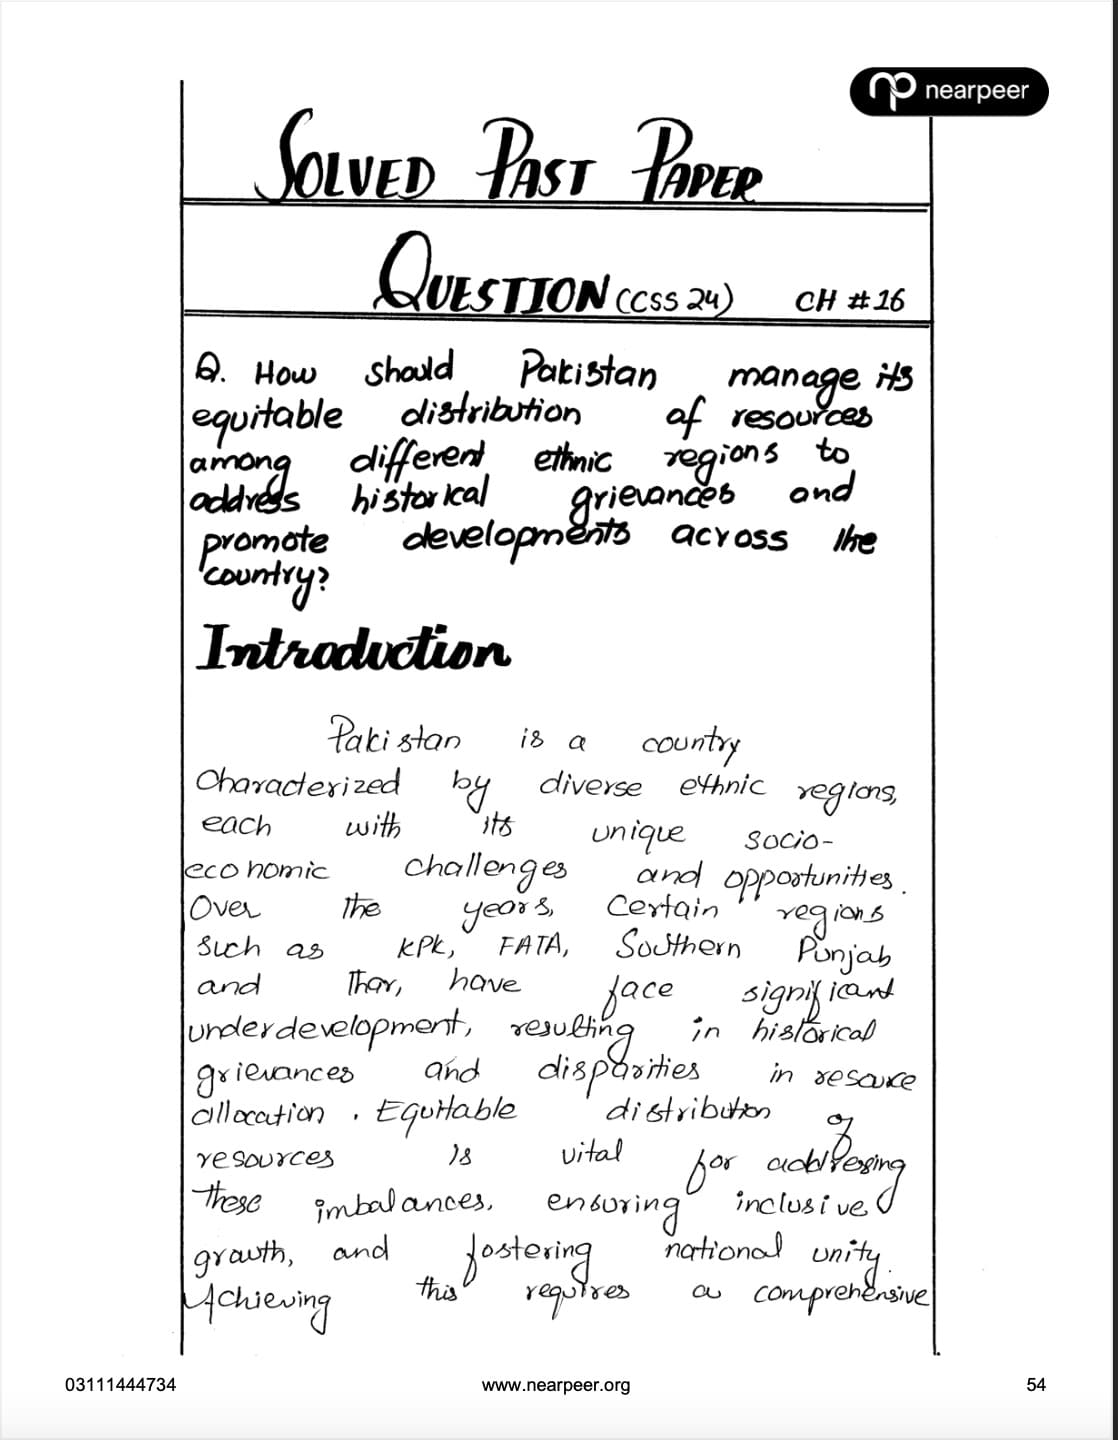 nearpeer
SOLVED PAST PAPER
QUESTION (CSS 24) CH #16
Q. How should Pakistan manage its
equitable distribution of resources
among different ethnic regions to
address historical grievances and
promote developments across the
country?
Introduction
Pakistan is a country
Characterized by diverse ethnic regions,
each with its unique socio-
economic challenges and opportunities.
Over the years, certain regions
such as KPK, FATA, Southern Punjab
and Thar, have face significant
underdevelopment, resulting in historical
grievances and disparities in resource
allocation. Equitable distribution of
resources is vital for addressing
these imbalances, ensuring inclusive
growth, and fostering national unity.
Achieving this requires a comprehensive
03111444734 www.nearpeer.org 54